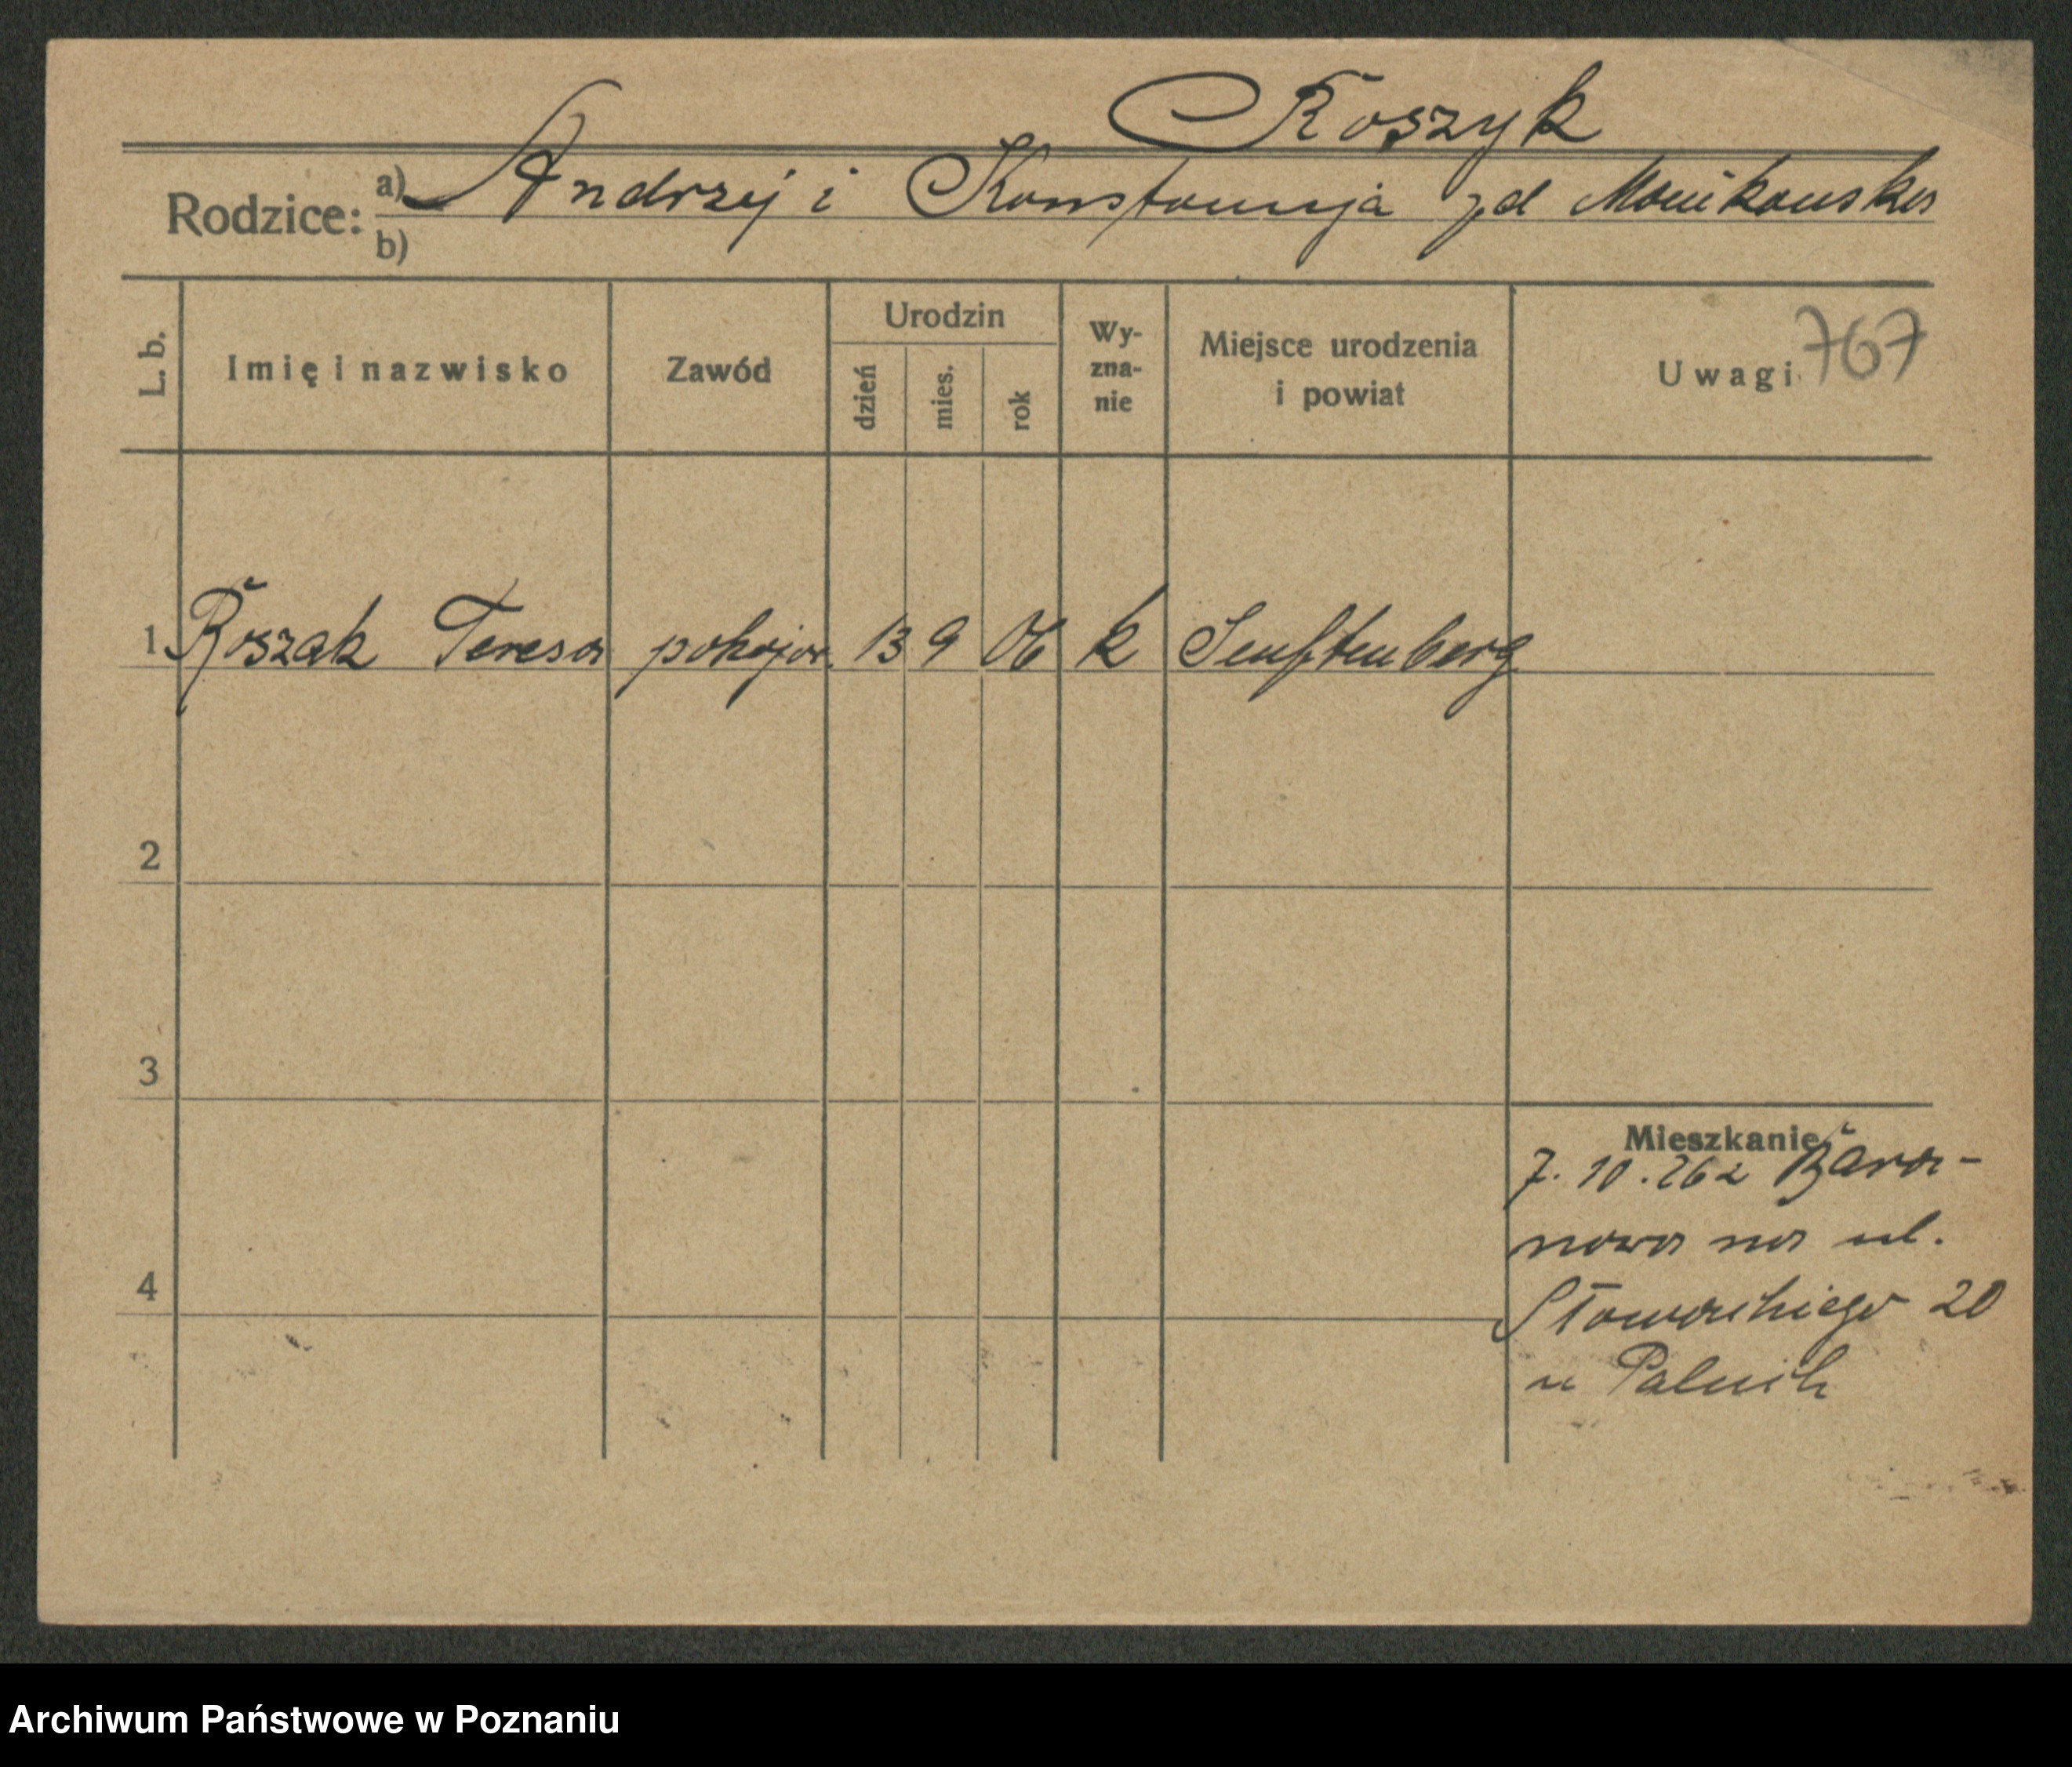 Roszyk
Rodzice: a) Andrzej i Konstancja zd
b)
L. b. Imię i nazwisko Zawód Urodzin dzień mies. rok Wy-zna-nie Miejsce urodzenia i powiat Uwagi 767
1 Roszak Teresa pokojow. 13 9 06 k Senftenberg
2
3
Mieszkanie
7. 10. Bara-
nowa na ul.
4
Słowackiego 20
u
Archiwum Państwowe w Poznaniu